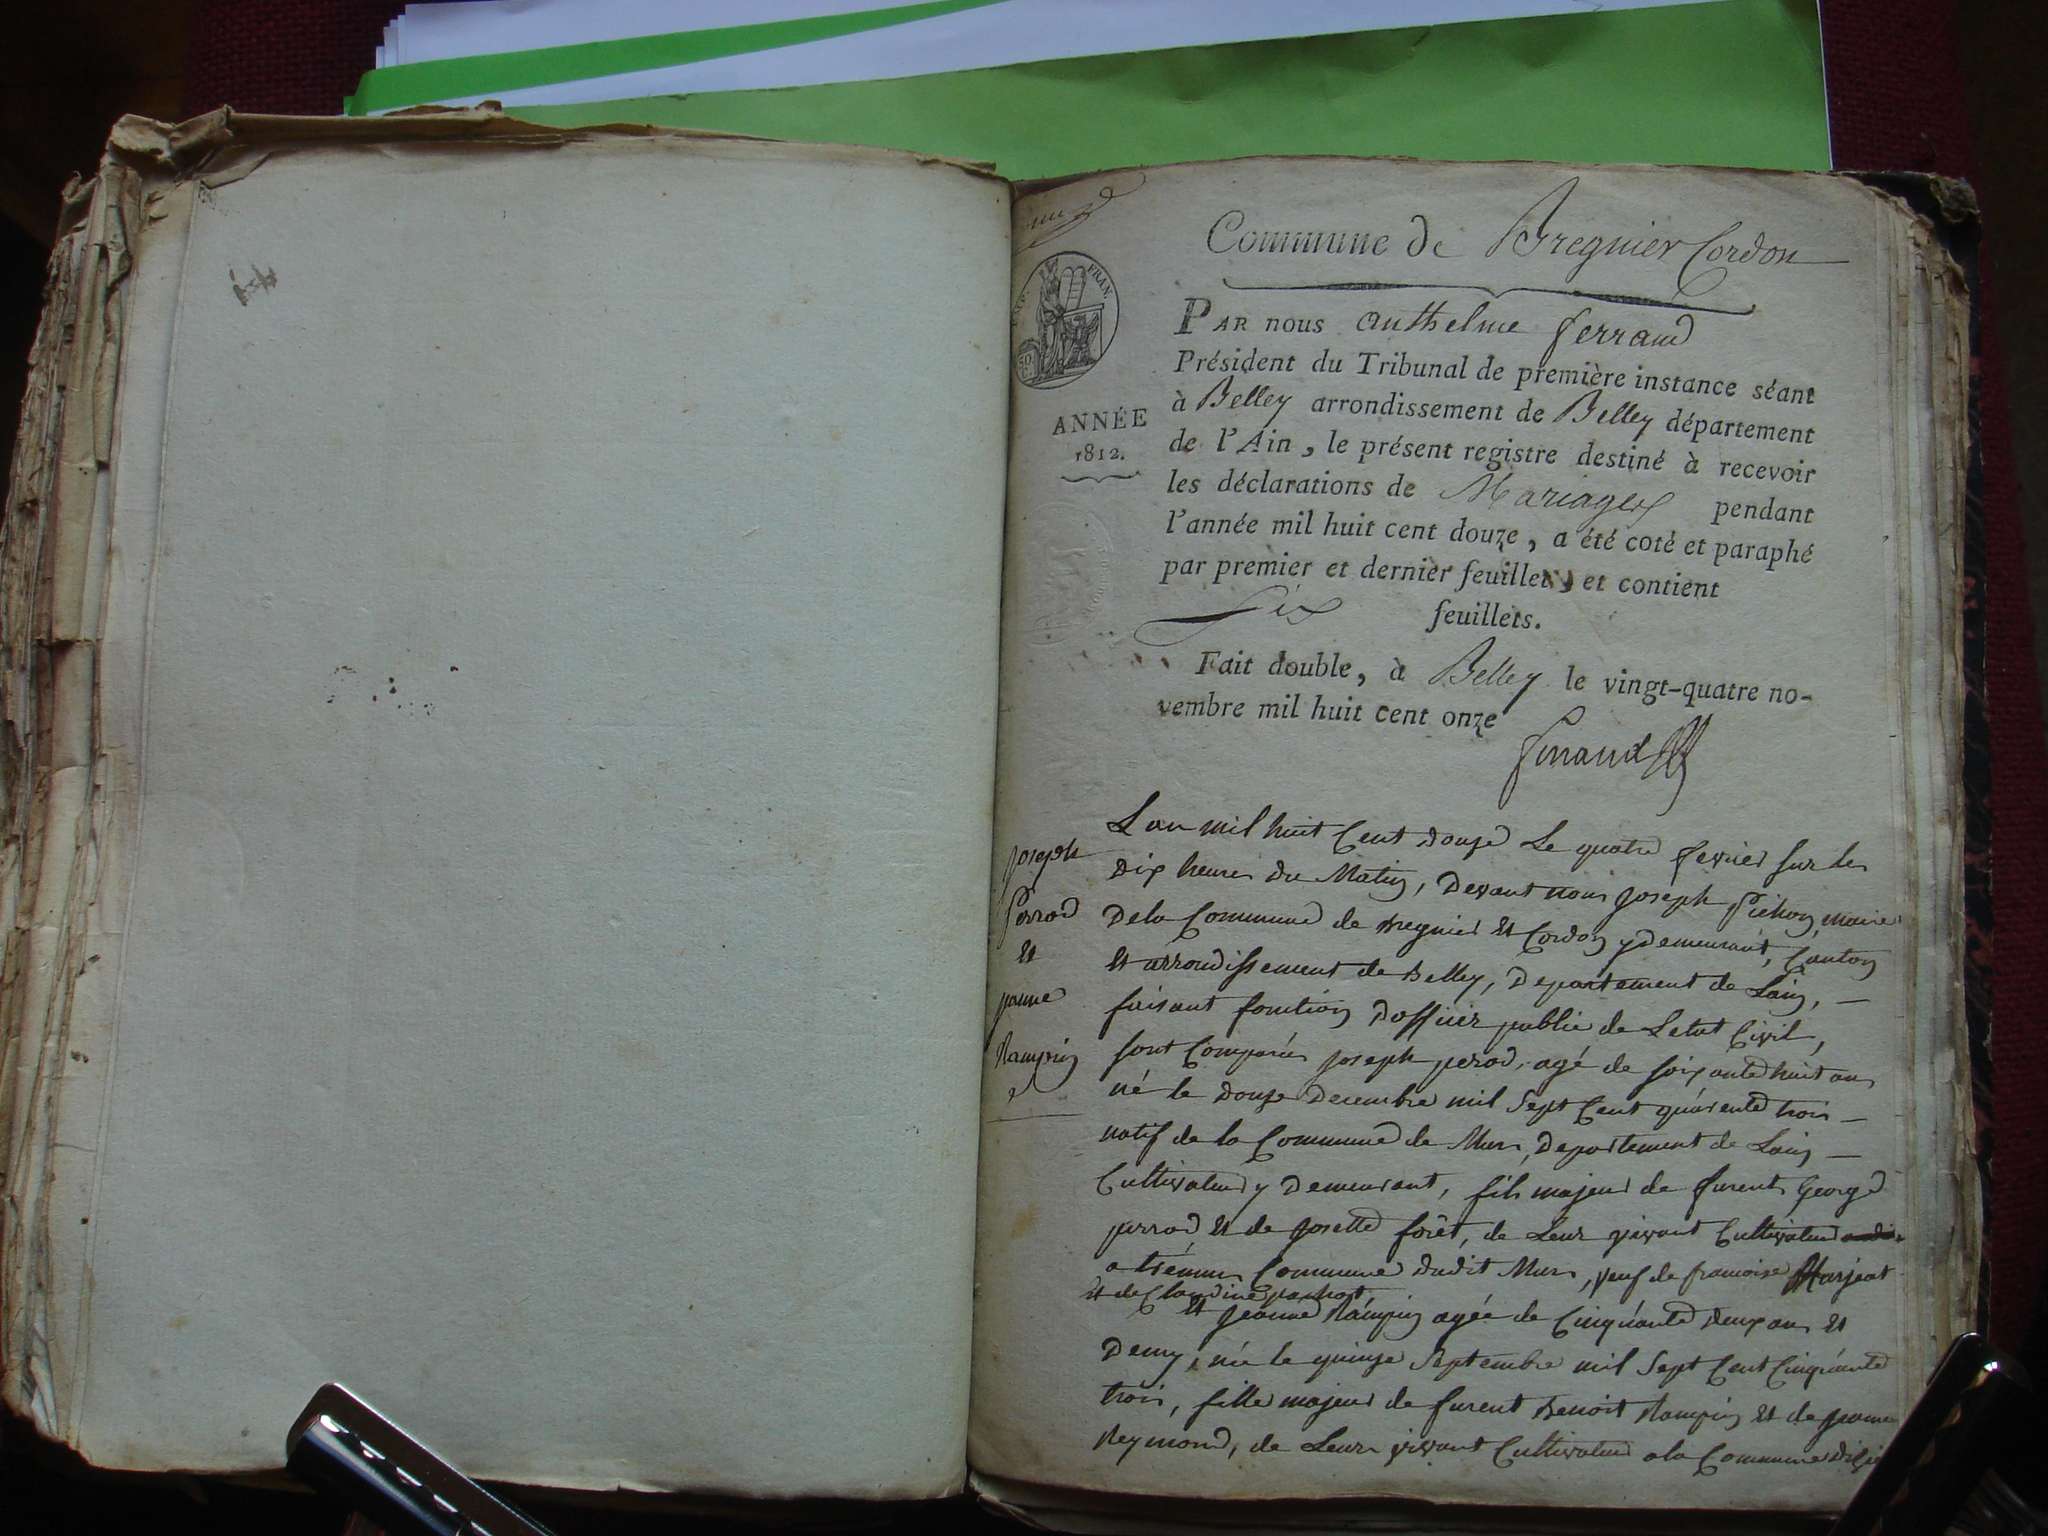 Commune de Bregnier Cordon
EMP. FRAN.
ANNÉE
1812.
PAR NOUS Anthelme Ferrand
Président du Tribunal de première instance séant
à Belley arrondissement de Belley département
de l'Ain, le présent registre destiné à recevoir
les déclarations de Mariages pendant
l'année mil huit cent douze, a été coté et paraphé
par premier et dernier feuillet, et contient
Six feuillets.
Fait double, à Belley le vingt-quatre no-
vembre mil huit cent onze
Ferrand
Joseph
Perrod
et
jeanne
Rampin
Lan mil huit Cent douze Le quatre fevrier sur les
dix heures du Matin, devant nous joseph Pichon, maire
De la Commune de Bregnier et Cordon y demeurant, Canton
et arrondissement de Belley, Departement de Lain,
faisant fonction dofficier public de Letat Civil,
sont Comparus joseph perod, agé de soixante huit ans
né le douze Decembre mil Sept Cent quarente trois
natif de la Commune de Murs, departement de Lain
Cultivateur y demeurant, fils majeur de furent George
perrod et de josette forêt, de Leur vivant Cultivateur
a Commune dudit Murs, veuf de francoise
et de Claudine pachot,
et jeanne Rampin agée de Cinquante deux ans et
Demy, née le quinze Septembre mil Sept Cent Cinquante
trois, fille majeur de furent Benoit Rampin et de jeanne
Reymond, de Leur vivant Cultivateur a la Commune